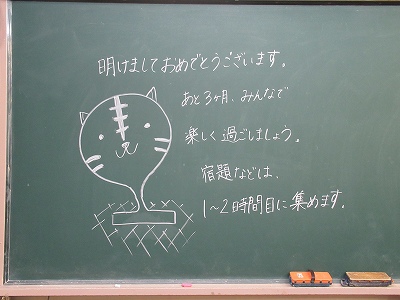 明けましておめでとうございます。
あと3ヶ月、みんなで
楽しく過ごしましょう。
宿題などは、
1~2時間目に集めます。